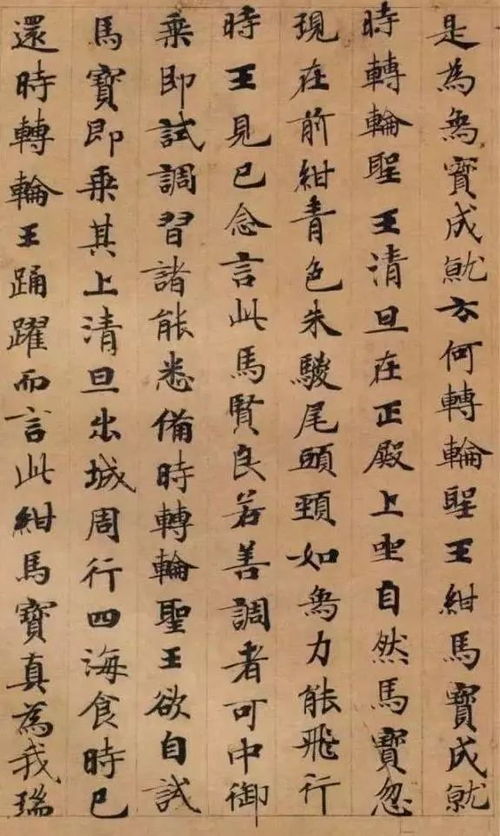 是為烏寶成就云何轉輪聖王紺馬寶成就
時轉輪聖王清旦在正殿上坐自然馬寶忽
現在前紺青色朱騣尾頭頸如烏力能飛行
時王見已念言此馬賢良若善調者可中御
乘即試調習諸能悉備時轉輪聖王欲自試
馬寶即乘其上清旦出城周行四海食時已
還時轉輪王踊躍而言此紺馬寶真為我瑞